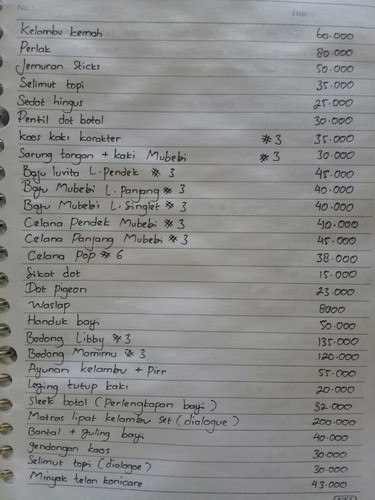 No.
Date
Kelambu kemah 60.000
Perlak 80.000
Jemuran Sticks 50.000
Selimut topi 35.000
Sedot hingus 25.000
Pentil dot botol 30.000
kaos kaki karakter #3 35.000
Sarung tangan + kaki Mubebi #3 30.000
Baju luvita L. Pendek #3 45.000
Baju Mubebi L. Panjang #3 40.000
Baju Mubebi L. Singlet #3 40.000
Celana Pendek Mubebi #3 40.000
Celana Panjang Mubebi #3 45.000
Celana Pop #6 38.000
Sikat dot 15.000
Dot pigeon 23.000
Waslap 8000
Handuk bayi 50.000
Bedong Libby #3 135.000
Bedong Mamimu #3 120.000
Ayunan kelambu + Pirr 55.000
Leging tutup kaki 20.000
Sleek botol (Perlengkapan bayi) 32.000
Matras lipat kelambu set (dialogue) 200.000
Bantal + guling bayi 40.000
gendongan kaos 30.000
Selimut topi (dialogue) 30.000
Minyak telon konicare 43.000